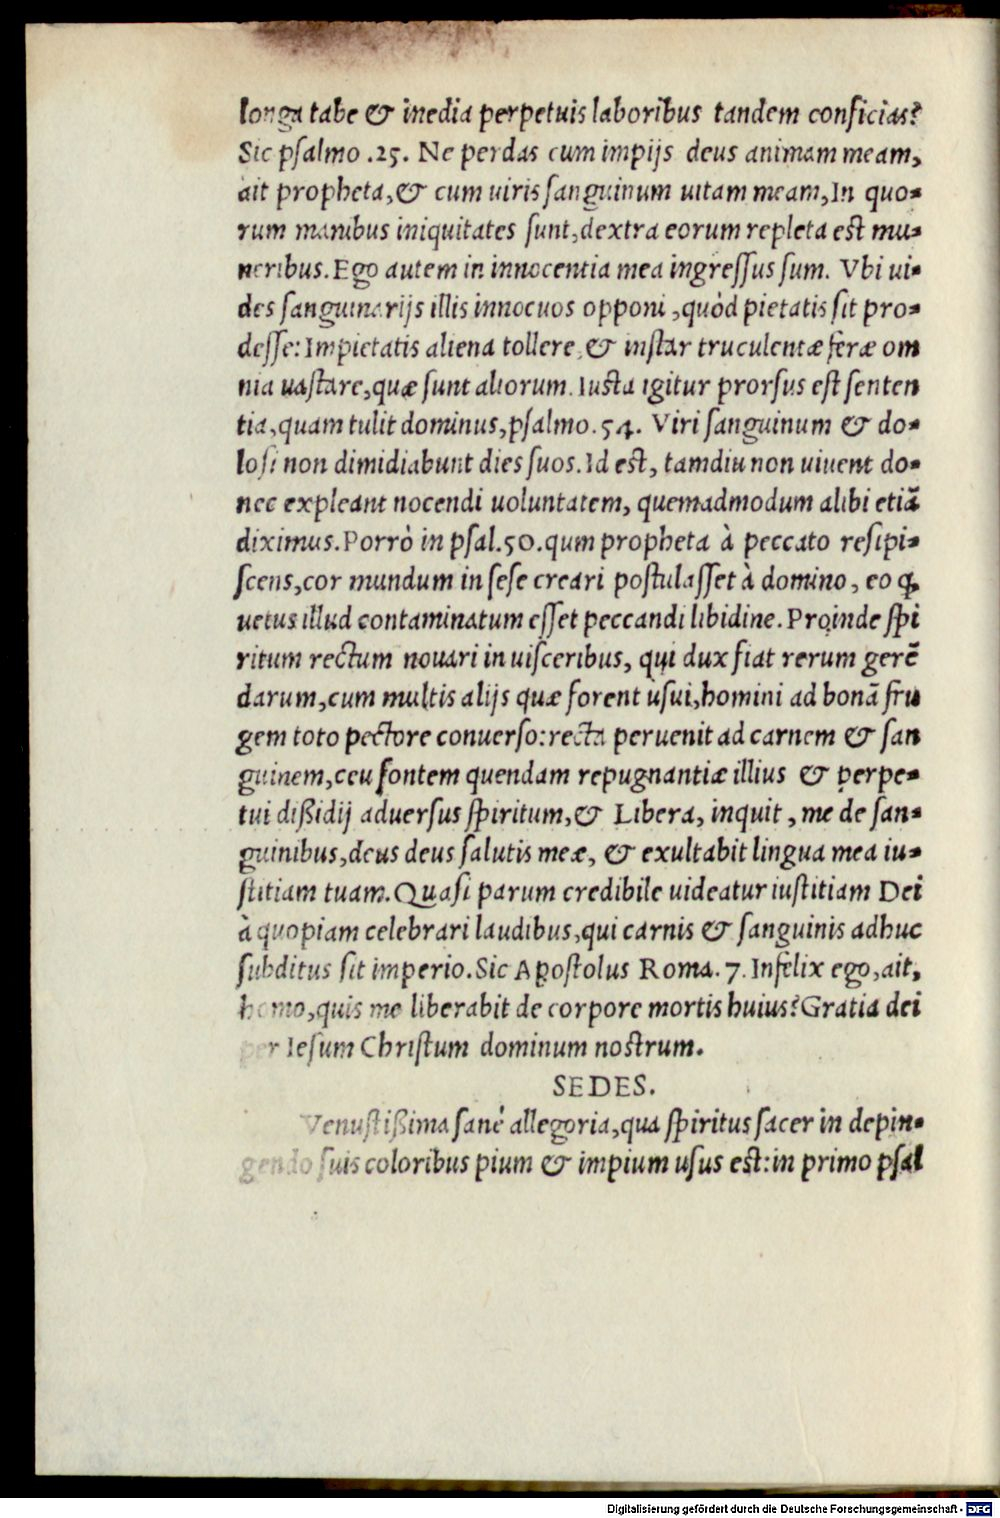 longa tabe & inedia perpetuis laboribus tandem conficias?
Sic psalmo .25. Ne perdas cum impijs deus animam meam,
ait propheta, & cum uiris sanguinum uitam meam, In quo-
rum manibus iniquitates sunt, dextra eorum repleta est mu-
neribus. Ego autem in innocentia mea ingressus sum. Vbi ui-
des sanguinarijs illis innocuos opponi, quòd pietatis sit pro-
desse: Impietatis aliena tollere, & instar truculentæ feræ om
nia uastare, quæ sunt aliorum. Iusta igitur prorsus est senten
tia, quam tulit dominus, psalmo. 54. Viri sanguinum & do-
losi non dimidiabunt dies suos. Id est, tamdiu non uiuent do-
nec expleant nocendi uoluntatem, quemadmodum alibi etiã
diximus. Porrò in psal. 50. qum propheta à peccato resipi-
scens, cor mundum in sese creari postulasset à domino, eo ꝙ
uetus illud contaminatum esset peccandi libidine. Proinde spi
ritum rectum nouari in uisceribus, qui dux fiat rerum gerẽ
darum, cum multis alijs quæ forent usui, homini ad bonã fru
gem toto pectore conuerso: recta peruenit ad carnem & san
guinem, ceu fontem quendam repugnantiæ illius & perpe-
tui dißidij aduersus spiritum, & Libera, inquit, me de san-
guinibus, deus deus salutis meæ, & exultabit lingua mea iu-
stitiam tuam. Quasi parum credibile uideatur iustitiam Dei
à quopiam celebrari laudibus, qui carnis & sanguinis adhuc
subditus sit imperio. Sic Apostolus Roma. 7. Infelix ego, ait,
homo, quis me liberabit de corpore mortis huius? Gratia dei
per Iesum Christum dominum nostrum.
SEDES.
Venustißima sanè allegoria, qua spiritus sacer in depin-
gendo suis coloribus pium & impium usus est: in primo psal
Digitalisierung gefördert durch die Deutsche Forschungsgemeinschaft - DFG